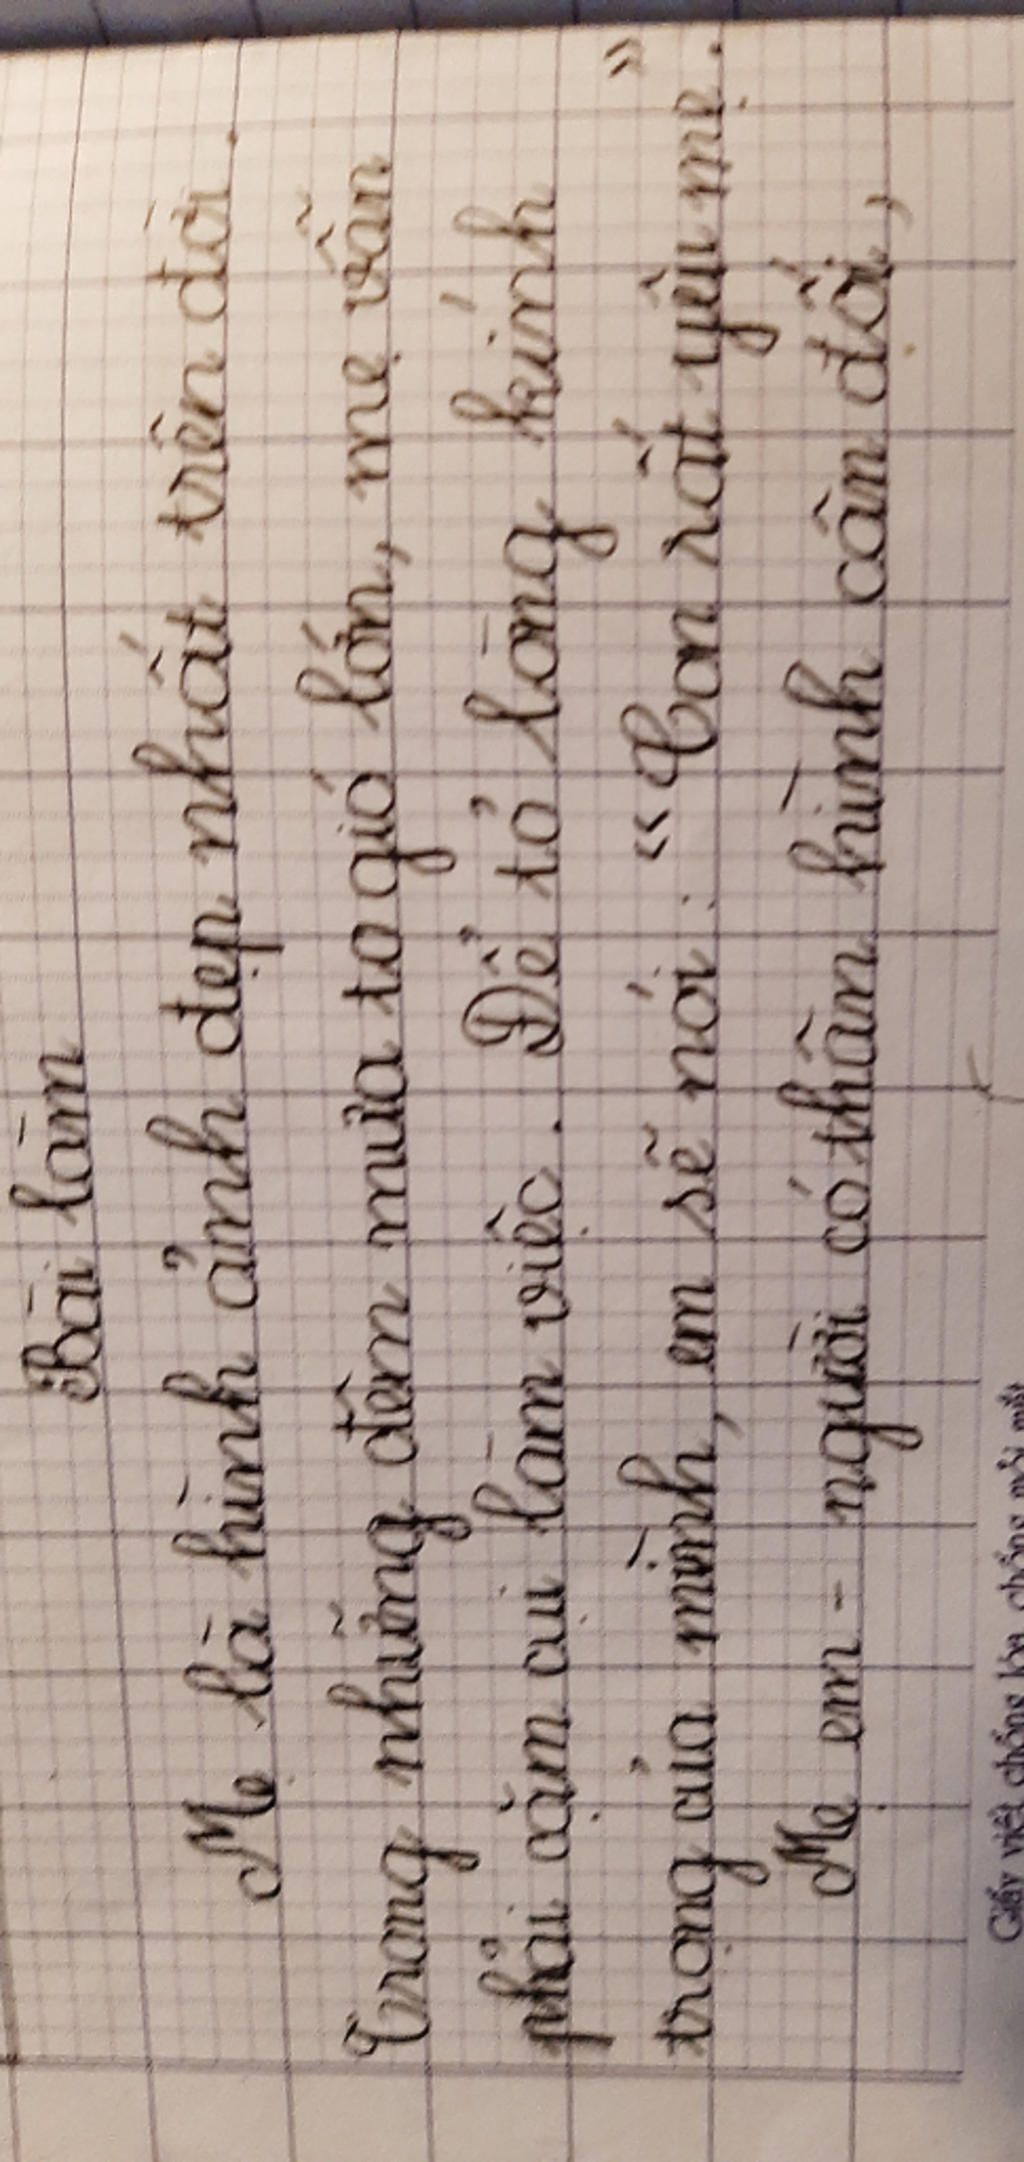 Bài làm
Mẹ là hình ảnh đẹp nhất trên đời.
Trong những đêm mưa to gió lớn, mẹ vẫn
phải cặm cụi làm việc. Để tỏ lòng kính
trọng của mình, em sẽ nói: "Con rất yêu mẹ".
Mẹ em - người có thân hình cân đối,
Giấy viết chống lóa, chống mỏi mắt